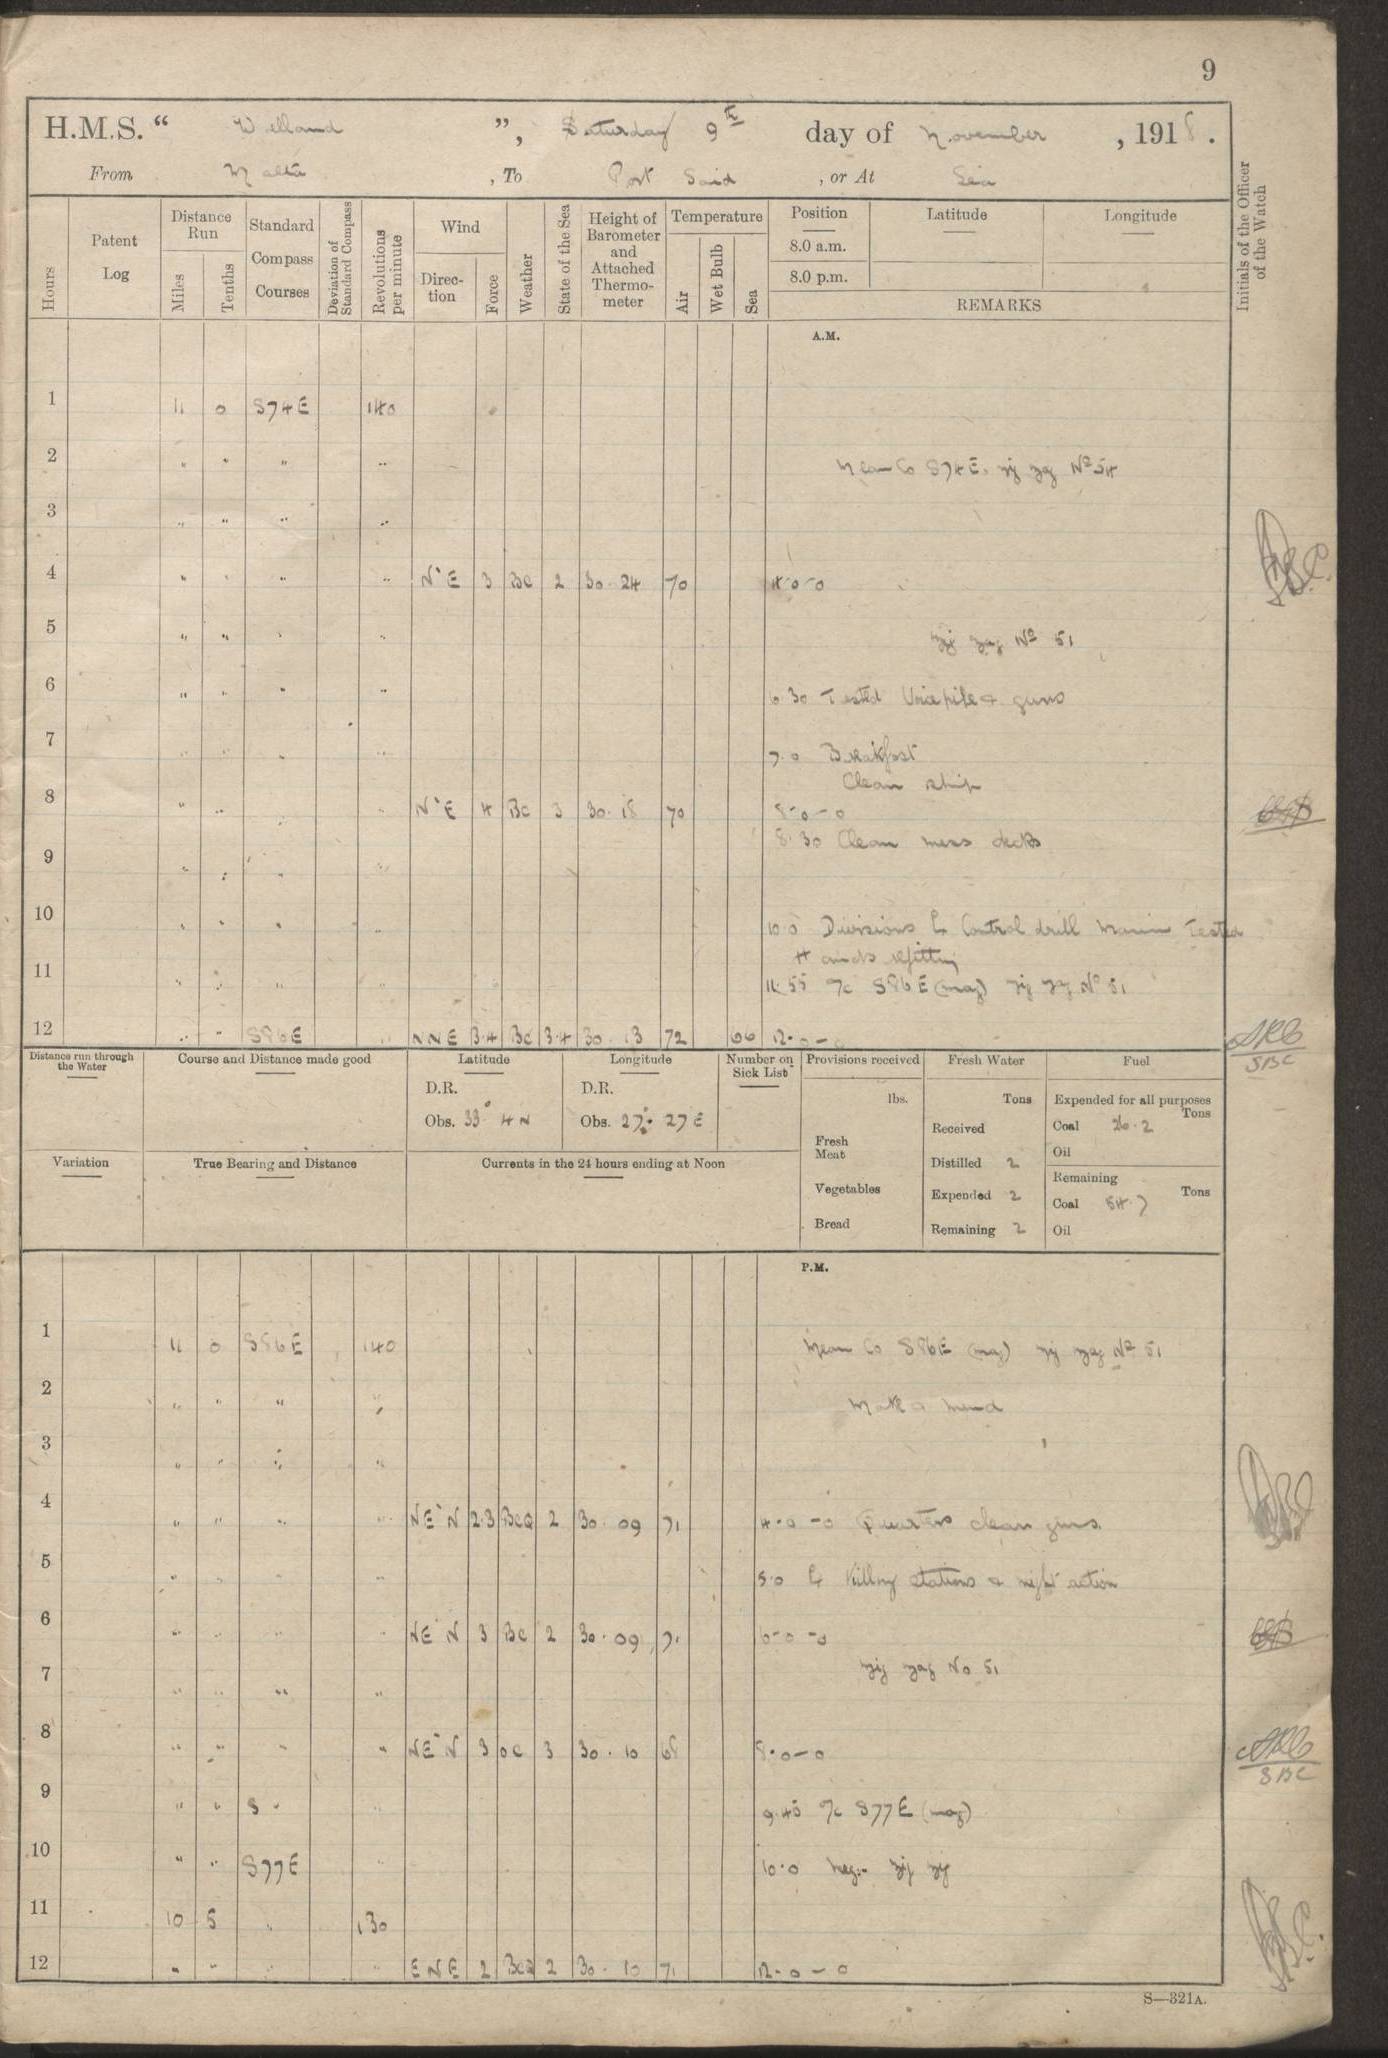 9
H.M.S. “ Welland ”, Saturday 9th day of November , 1918.
From Malta , To Port Said , or At Sea
Hours
Patent Log
Distance Run
Miles
Tenths
Standard Compass Courses
Deviation of Standard Compass
Revolutions per minute
Wind
Direction
Force
Weather
State of the Sea
Height of Barometer and Attached Thermometer
Temperature
Air
Wet Bulb
Sea
Position
8.0 a.m.
8.0 p.m.
Latitude
Longitude
REMARKS
Initials of the Officer of the Watch
A.M.
1 11 0 S74E 140
2 " " " " Mean Co S74E. zig zag No 54
3 " " " "
4 " " " " N'E 3 BC 2 30.24 70 4-0-0
5 " " " " zig zag No 51
6 " " " " 6.30 Tested Voicepipe & guns
7 " " " " 7.0 Breakfast
Clean ship
8 " " " " N'E 4 BC 3 30.18 70 8-0-0
8.30 Clean mess decks
9 " " " "
10 " " " " 10.0 Divisions Ex Control drill Tested
Hands refitting
11 " " " " 11.55 A/c S86E (mag) zig zag No 51
12 " " S86E " NNE 3.4 BC 3.4 30.13 72 66 12-0-0
SBC
Distance run through the Water
Course and Distance made good
Latitude
D.R.
Obs. 33° 4 N
Longitude
D.R.
Obs. 27° 27 E
Number on Sick List
Provisions received
lbs.
Fresh Meat
Vegetables
Bread
Fresh Water
Tons
Received
Distilled 2
Expended 2
Remaining 2
Fuel
Expended for all purposes
Tons
Coal 26.2
Oil
Remaining
Tons
Coal 54.7
Oil
Variation
True Bearing and Distance
Currents in the 24 hours ending at Noon
P.M.
1 11 0 S86E 140 Mean Co S86E (mag) zig zag No 51
2 " " " " Make & mend
3 " " " "
4 " " " " NE'N 2.3 BCQ 2 30.09 71 4-0-0 Quarters clean guns.
5 " " " " 5.0 Ex Killing stations & night action
6 " " " " NE'N 3 BC 2 30.09 71 6-0-0
zig zag No 51
7 " " " "
8 " " " " NE'N 3 OC 3 30.10 68 8-0-0
SBC
9 " " S " " 9.45 A/c S77E (mag)
10 " " S77E " 10.0 Neg. zig zag
11 10 5 " 130
12 " " " " ENE 2 BCQ 2 30.10 71 12-0-0
S—321A.